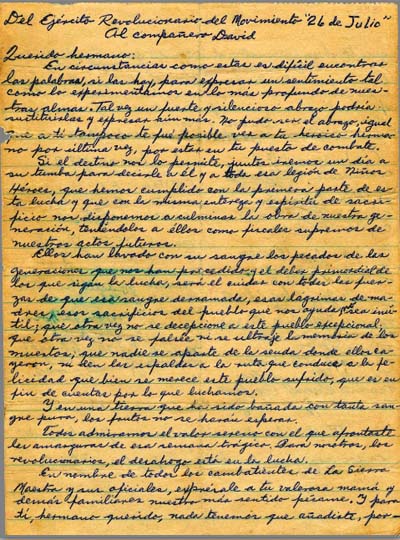 Del Ejército Revolucionario del Movimiento "26 de Julio"
Al compañero David
Querido hermano:
En circunstancias como estas es difícil encontrar
las palabras, si las hay, para expresar un sentimiento tal
como lo experimentamos en lo más profundo de nues-
tras almas. Tal vez un fuerte y silencioso abrazo podría
sustituirlas y expresar aún más. No pudo ser el abrazo, igual
que a ti tampoco te fué posible ver a tu heroico herma-
no por última vez, por estar en tu puesto de combate.
Si el destino nos lo permite, juntos iremos un día a
su tumba para decirle a él y a toda esa legión de Niños
Héroes, que hemos cumplido con la primera parte de es
ta lucha y que con la misma entereza y espíritu de sacri-
ficio nos disponemos a culminar la obra de nuestra ge-
neración, teniéndolos a ellos como fiscales supremos de
nuestros actos futuros.
Ellos han lavado con su sangre los pecados de las
generaciones que nos han precedido y el deber primordial de
los que sigan la lucha, será el cuidar con todas las fuer-
zas de que esa sangre derramada, esas lágrimas de ma-
dres y esos sacrificios del pueblo que nos ayuda, sea inú-
til; que otra vez no se decepcione a este pueblo excepcional;
que otra vez no se falsee ni se ultraje la memoria de los
muertos, que nadie se aparte de la senda donde ellos ca-
yeron, ni den las espaldas a la ruta que conduce a la fe-
licidad que bien se merece este pueblo sufrido, que es en
fin de cuentas por lo que luchamos.
Y en una tierra que ha sido bañada con tanta san-
gre pura, los frutos no se harán esperar.
Todos admiramos el valor sereno con el que afrontaste
las amarguras de esa semana trágica. Para nosotros, los
revolucionarios, el desahogo está en la lucha.
En nombre de todos los combatientes de La Sierra
Maestra y sus oficiales, exprésale a tu valerosa mamá y
demás familiares nuestro más sentido pésame. Y para
ti, hermano querido, nada tenemos que añadirte, por-